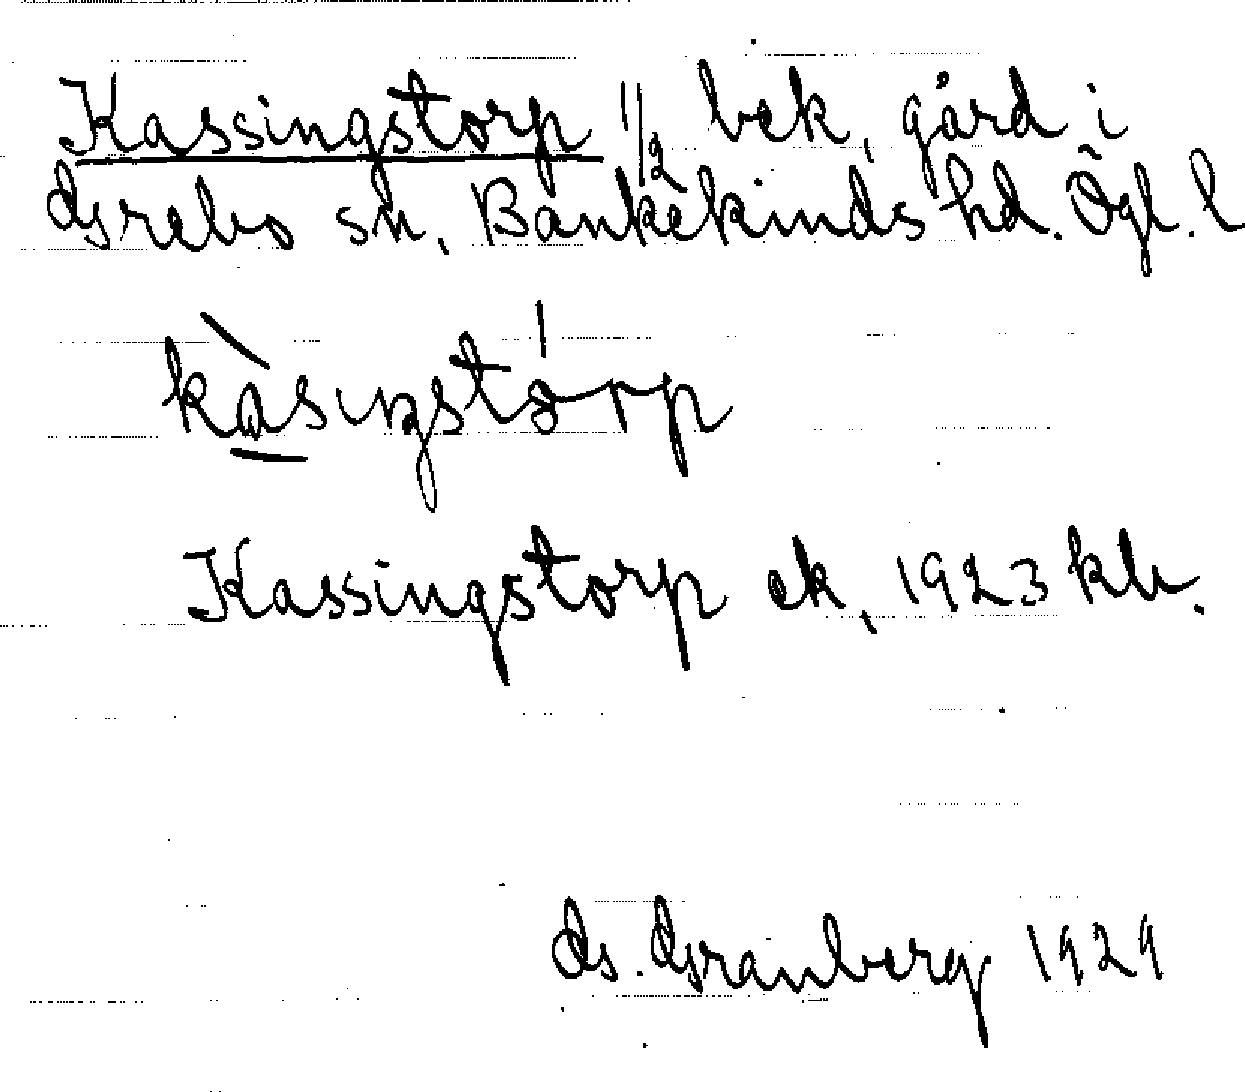 Kassingstorp 1/2 bek. gård i
Grebo sn. Bankekinds hd. Ögl. l
kàsıŋstórp
Kassingstorp ek. 1923 kb.
G. Granberg 1929